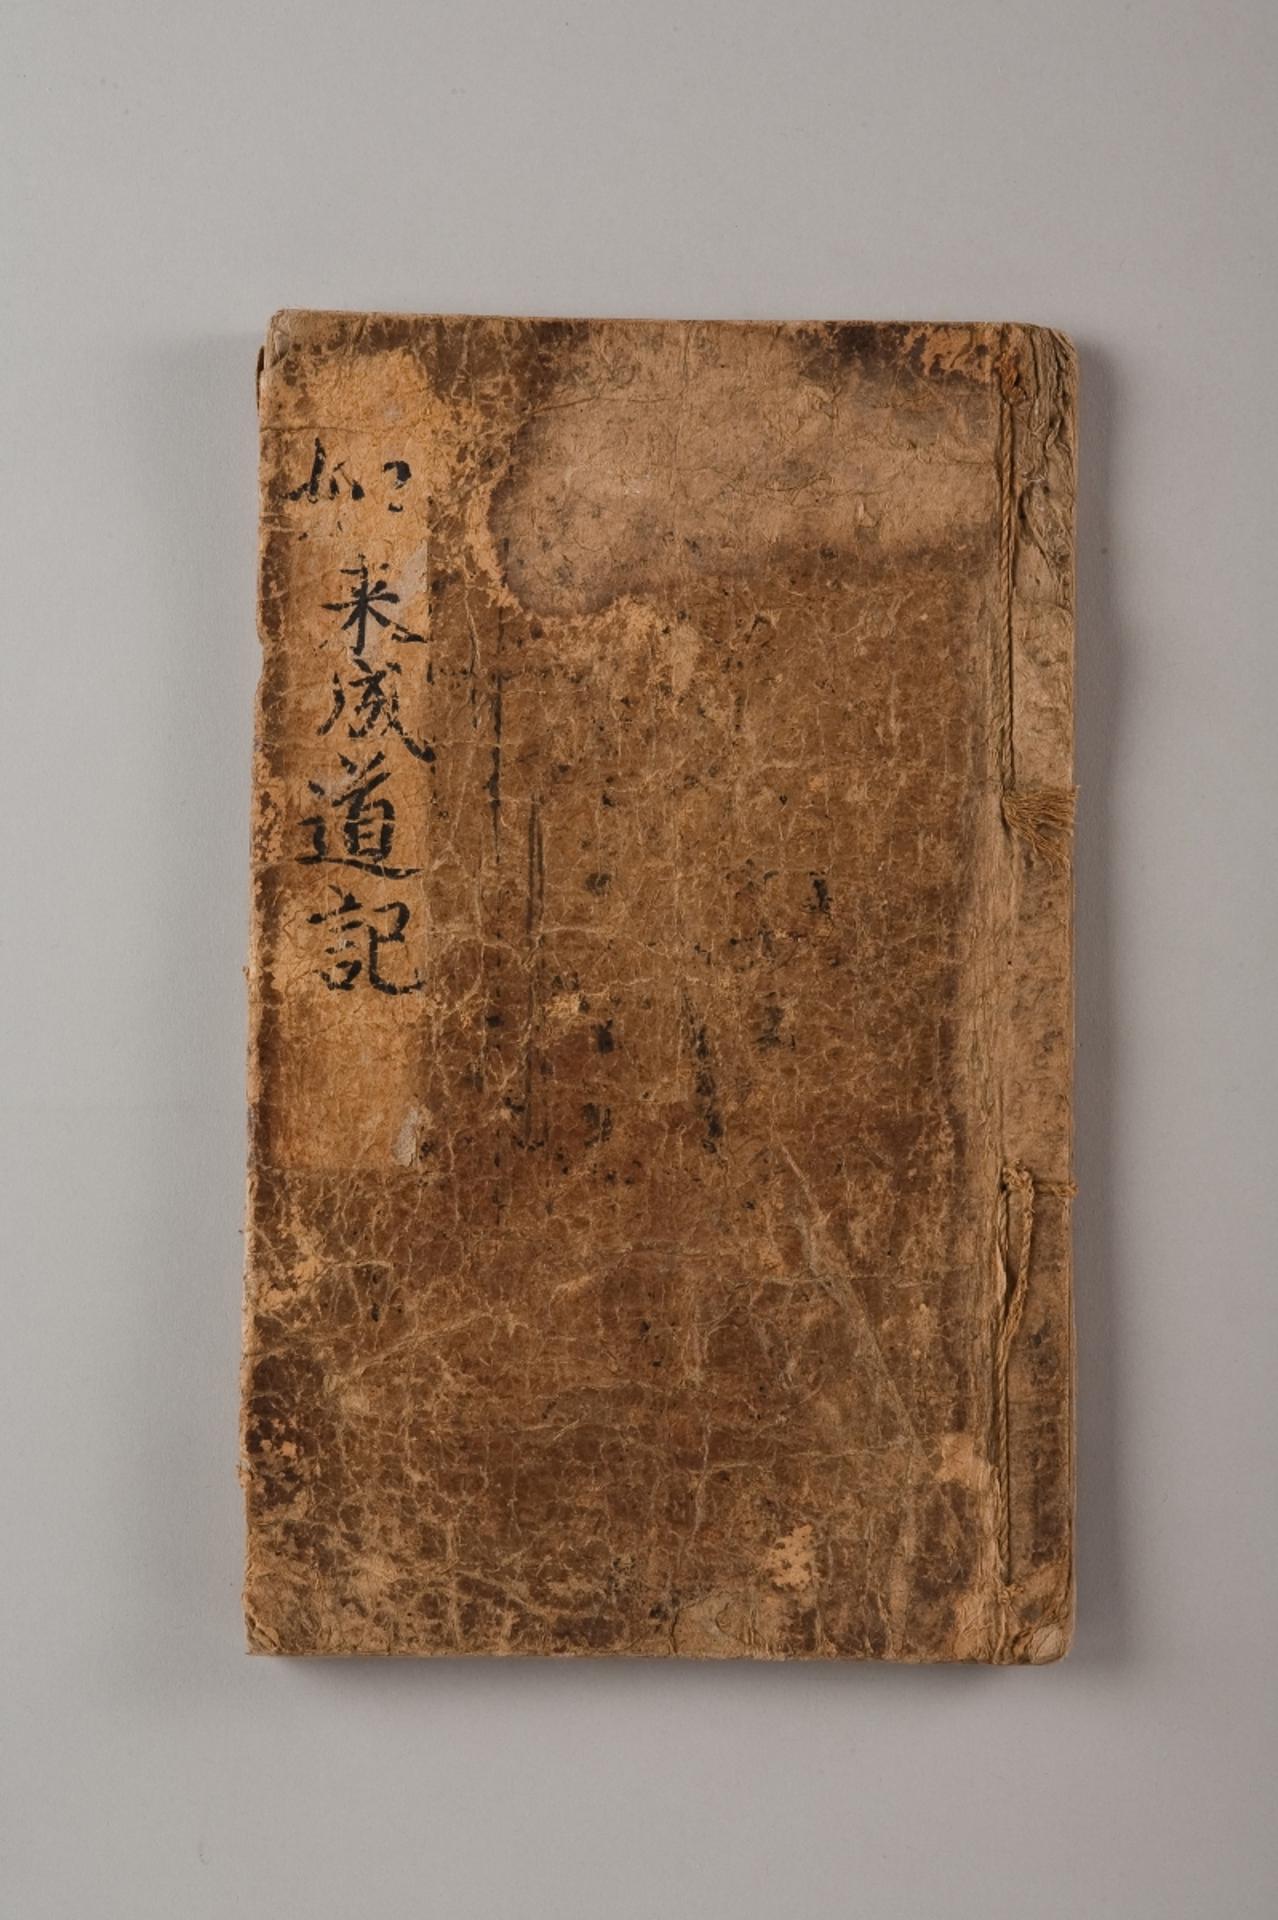 如来成道記